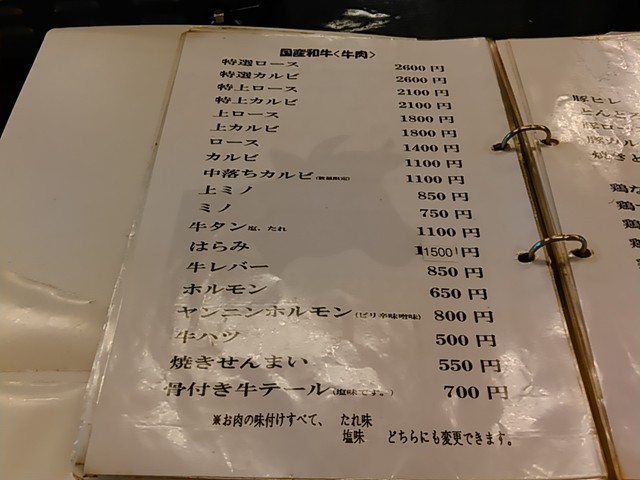 国産和牛<牛肉>
特選ロース 2600 円
特選カルビ 2600 円
特上ロース 2100 円
特上カルビ 2100 円
上ロース 1800 円
上カルビ 1800 円
ロース 1400 円
カルビ 1100 円
中落ちカルビ(数量限定) 1100 円
上ミノ 850 円
ミノ 750 円
牛タン塩、たれ 1100 円
はらみ 1500 円
牛レバー 850 円
ホルモン 650 円
ヤンニンホルモン(ピリ辛味噌味) 800 円
牛ハツ 500 円
焼きせんまい 550 円
骨付き牛テール(塩味です。) 700 円
※お肉の味付けすべて、 たれ味
塩味 どちらにも変更できます。
豚ヒレ
とんと
豚ロ
豚カル
焼きと
鶏
鶏
鶏
鶏
鶏